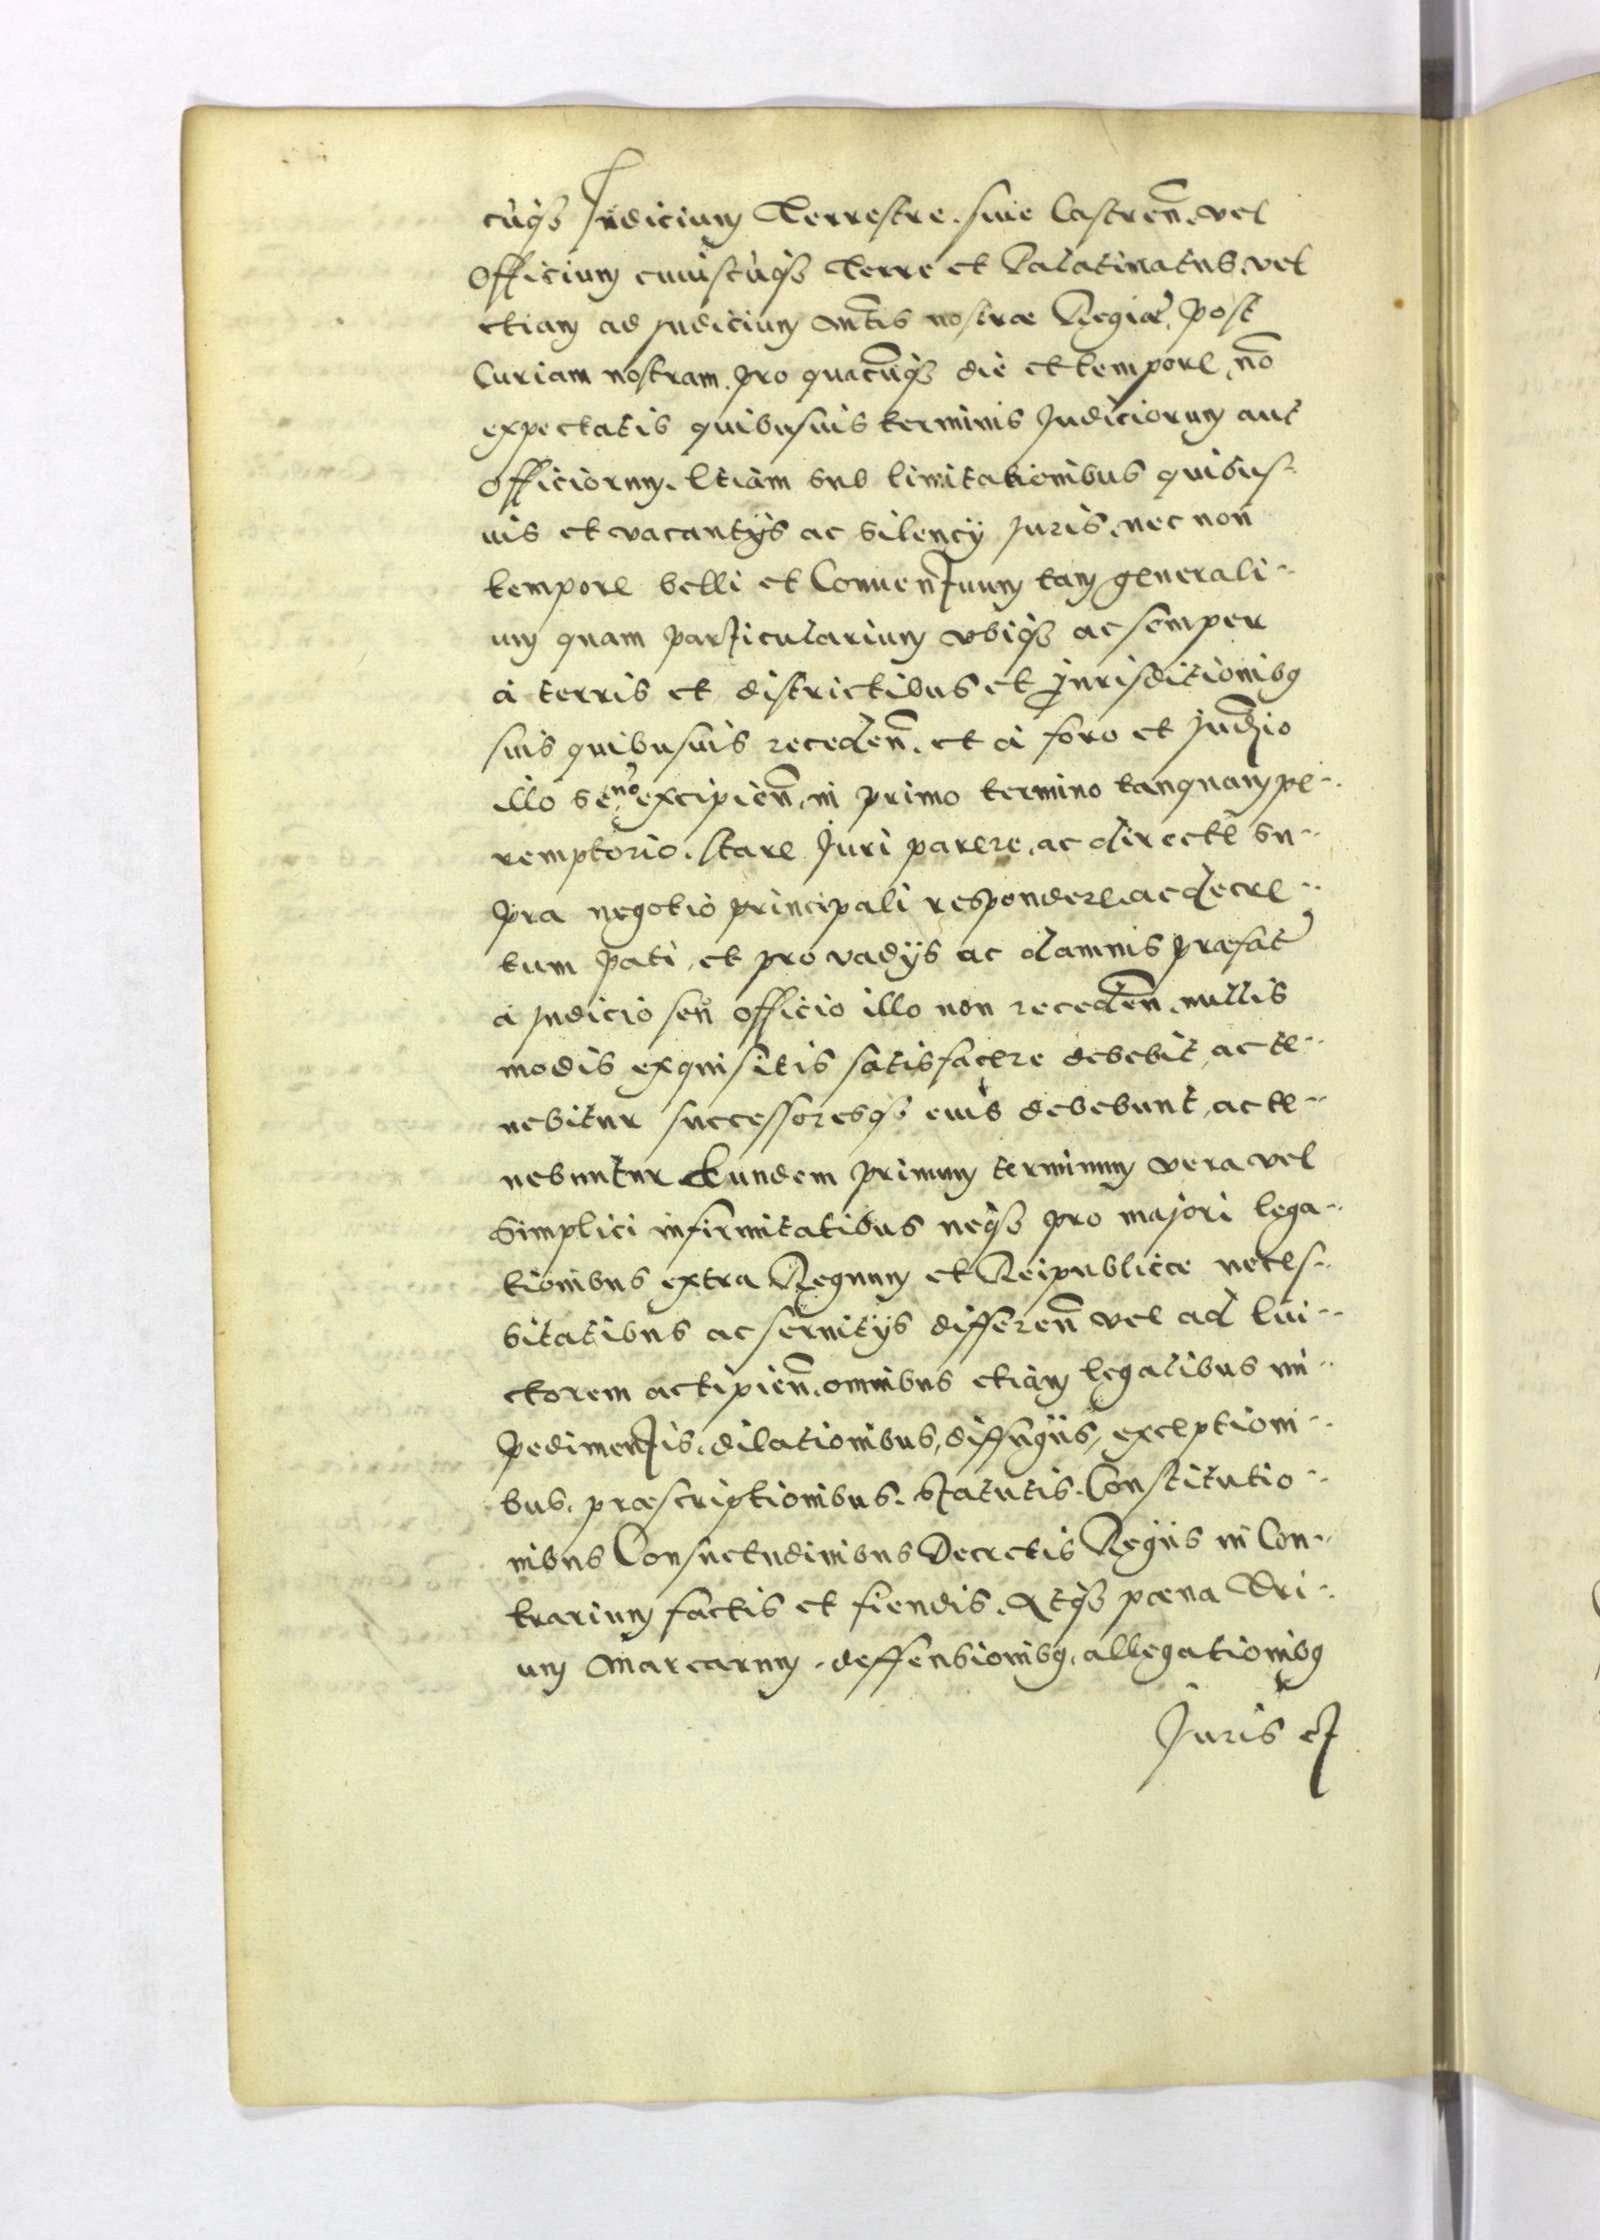 cuq̃ Judicium Terrestre siue Castren̄. vel
Officium cuiuscuq̃ Terre et Palatinatus, vel
etiam ad Judicium Mt̃tis nostræ Regiæ, post
Curiam nostram, pro quacūq̃ die et tempore, nō
expectatis quibusuis terminis Judiciorum aut
Officiorum. Etiam sub limitationibus quibus-
uis et vacantijs ac silencij Juris, nec non
tempore belli et Conuentuum tam generali-
um quam particularium vbiq̃ ac semper
à terris et districtibus et Jurisditionibg
suis quibusuis receden̄. et à foro et Judt̃io
illo se nō excipien̄. in primo termino tanquam pe-
remptorio. stare Juri parere, ac directe su-
pra negotio principali respondere, ac decre-
tum pati, et pro vadijs ac damnis præfat̃
à Judicio seu officio illo non receden̄. nullis
modis exquisitis satisfacere debebit, ac te-
nebitur successoresq̃ eius debebunt, ac te-
nebuntur Eundem primum terminum vera vel
simplici infirmitatibus neq̃ pro majori lega-
tionibus extra Regnum et Reipublicæ neces-
sitatibus ac seruitijs differen̄ vel ad Eui-
ctorem accipien̄. omnibus etiam legalibus im-
pedimentis, dilationibus, diffugiis, exceptioni-
bus, præscriptionibus. Statutis. Constitutio-
nibus Consuetudinibus Decretis Regiis in Con-
trarium factis et fiendis. Atq̃ pœna Tri-
um Marcarum. deffensionibg, allegationibg
Juris et